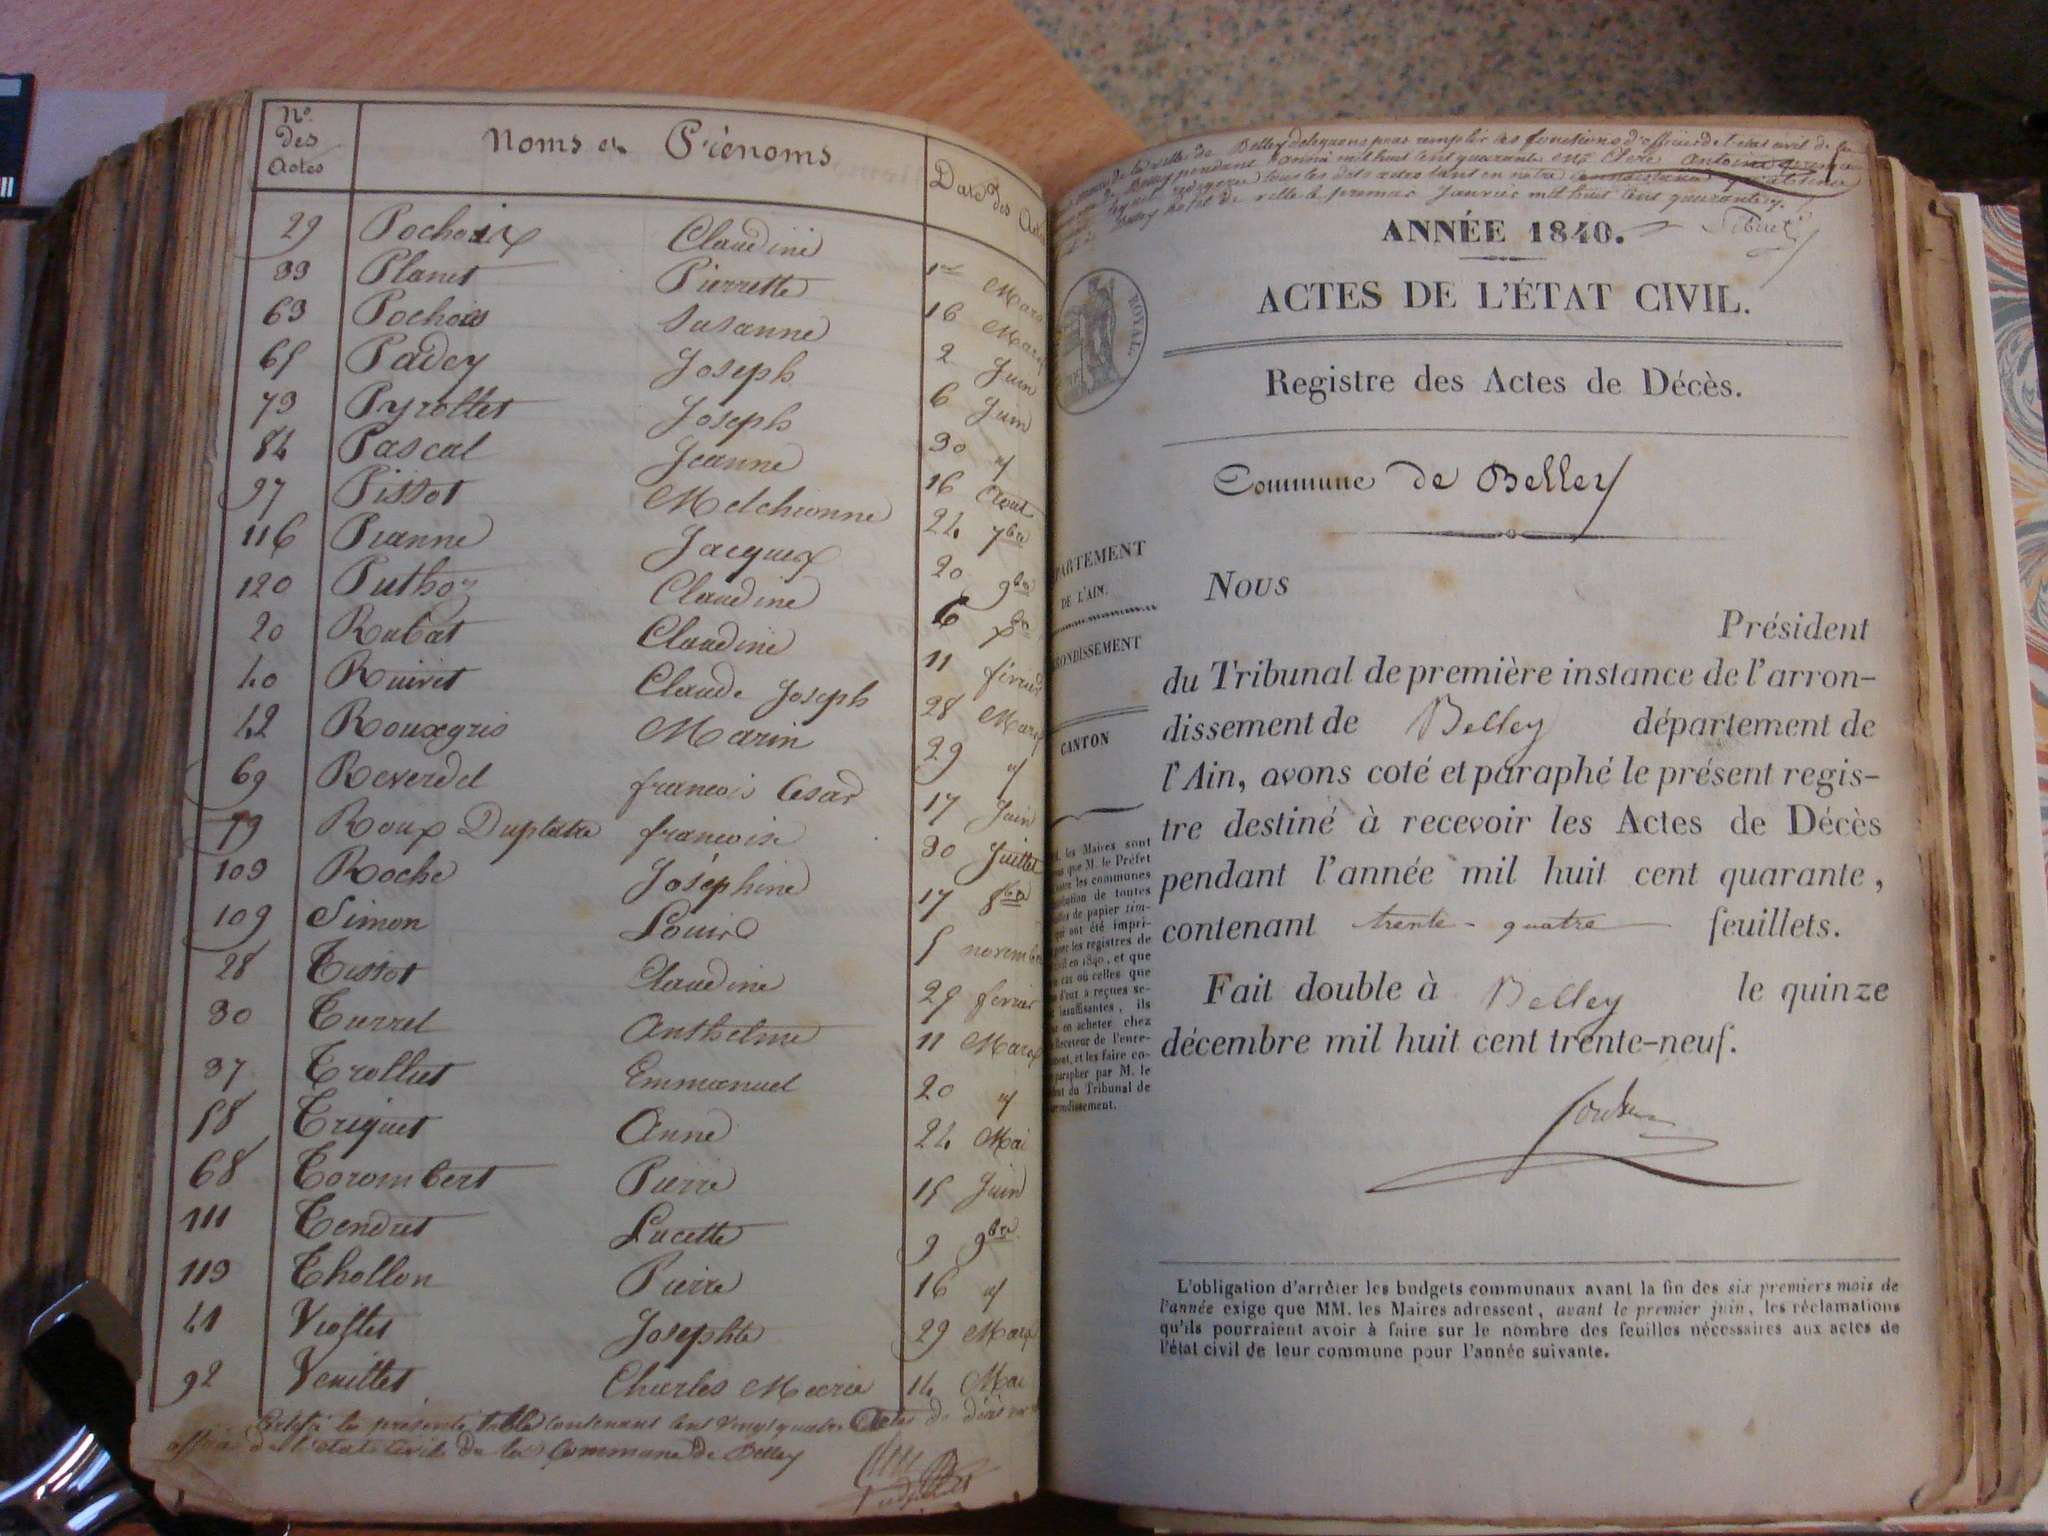 Nos des Actes Noms et Prénoms Dates des
29 Pochoix Claudine 1er Mars
33 Planet Pierrette 16 Mars
63 Pochoix Susanne 2 Juin
65 Padey Joseph 6 Juin
73 Pyrollet Joseph 30 "
84 Pascal Jeanne 16 Aout
97 Pissot Melchionne 24 7bre
116 Pianne Jacques 20 9bre
120 Puthoz Claudine 6 xbre
20 Rubat Claudine 11 février
40 Ruivet Claude Joseph 28 Mars
42 Rouxgris Marin 29 "
69 Reverdel francois Cesar 17 Juin
79 Roux Duplatre francoise 30 Juillet
103 Roche Joséphine 17 8bre
109 Simon Louis 5 novembre
28 Tissot Claudine 29 fevrier
30 Turrel Anthelme 11 Mars
37 Trolliet Emmanuel 20 "
58 Triquet Anne 24 Mai
68 Torombert Pierre 15 Juin
111 Tendret Lucette 9 9bre
113 Thollon Pierre 16 "
41 Viollet Josephte 29 Mars
92 Veuillet Charles Marie 14 Mai
Certifié la présente table contenant cent vingt quatre Actes de décès
de l'état civil de la Commune de Belley
de la ville de Belley déléguons pour remplir les fonctions d'officier de l'état civil de la
de Belley pendant l'année mil huit cent quarante Mr Clerc
tous les dits actes tant en notre
de ville le premier Janvier mil huit cent quarante
ANNÉE 1840.
ACTES DE L'ÉTAT CIVIL.
ROYAL.
Registre des Actes de Décès.
Commune de Belley
PARTEMENT
DE L'AIN.
RONDISSEMENT
CANTON
les Maires sont
que M. le Préfet
les communes
de toutes
de papier tim-
qui ont été impri-
les registres de
en 1840, et que
cas où celles que
reçues se-
insuffisantes, ils
en acheter chez
Receveur de l'enre-
et les faire co-
parapher par M. le
du Tribunal de
Nous
Président
du Tribunal de première instance de l'arron-
dissement de Belley département de
l'Ain, avons coté et paraphé le présent regis-
tre destiné à recevoir les Actes de Décès
pendant l'année mil huit cent quarante,
contenant trente-quatre feuillets.
Fait double à Belley le quinze
décembre mil huit cent trente-neuf.
L'obligation d'arrêter les budgets communaux avant la fin des six premiers mois de
l'année exige que MM. les Maires adressent, avant le premier juin, les réclamations
qu'ils pourraient avoir à faire sur le nombre des feuilles nécessaires aux actes de
l'état civil de leur commune pour l'année suivante.